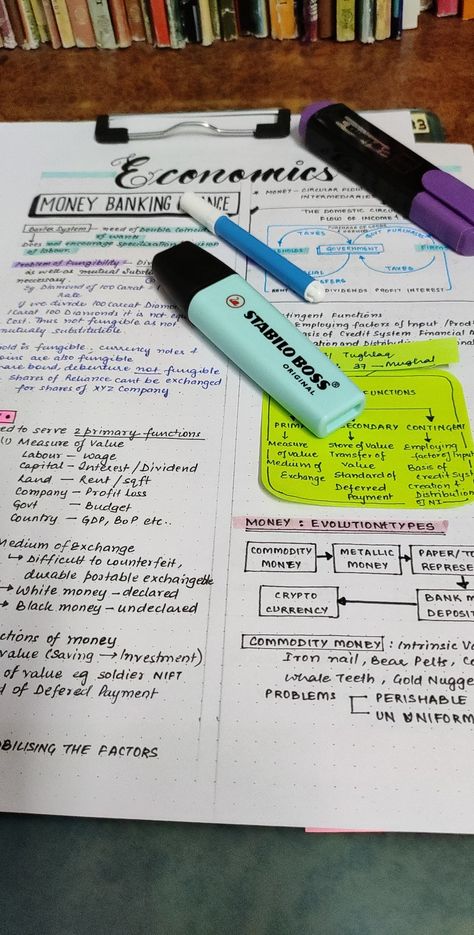 Economics
MONEY BANKING
Barter System - need of double
of wants
Does not encourage specialization
of labour.
Problem of Fungibility :
as well as mutual
necessary.
eg Diamond of 100 Carat
Rate
if we divide 100 Carat
1 Carat 100 Diamonds it is not
Cost. Thus not fungible as not
mutually substitutable
Gold is fungible. currency notes &
coins are also fungible
bond, debenture not fungible
shares of Reliance cant be exchanged
for shares of XYZ Company.
to serve 2 primary functions
(1) Measure of Value
Labour - wage
Capital - Interest / Dividend
Land - Rent / sqft
Company - Profit Loss
Govt - Budget
Country - GDP, BoP etc..
Medium of Exchange
↳ Difficult to counterfeit,
durable portable exchangeable
→ White money - declared
→ Black money - undeclared
of money
value (saving → Investment)
of value eg soldier NIFT
of Defered Payment
THE FACTORS
MONEY - CIRCULAR
INTERMEDIARIES
THE DOMESTIC
FLOW OF INCOME
TAXES
GOVT
GOVERNMENT
TAXES
DIVIDENDS PROFIT INTEREST
Functions
Employing factors of Input
Basis of Credit System Financial
and
Tughlaq
37 → Mughal
FUNCTIONS
SECONDARY
CONTINGENT
Measure
of Value
Medium of
Exchange
Store of Value
Transfer of
Value
Standard of
Deferred
Payment
Employing
factor of
Basis of
Credit
Creation
Distribution
of NI
MONEY : EVOLUTION & TYPES
COMMODITY
MONEY
METALLIC
MONEY
PAPER
CRYPTO
CURRENCY
BANK
COMMODITY MONEY : Intrinsic
Iron nail, Bear Pelts,
Whale Teeth, Gold
PROBLEMS
PERISHABLE
UN UNIFORM
STABILO BOSS
ORIGINAL